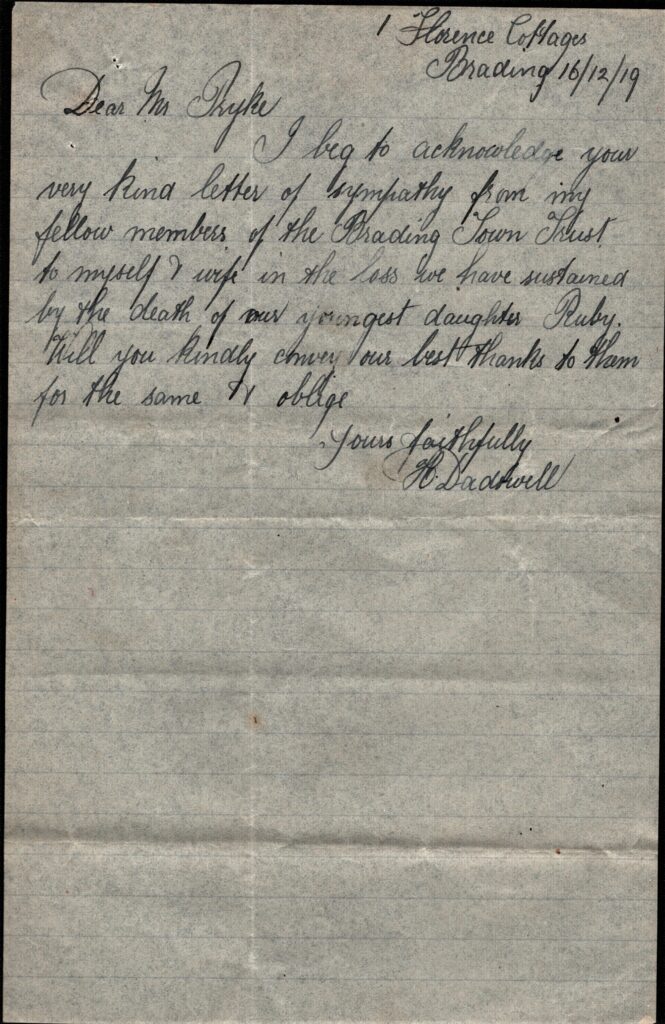 1 Florence Cottages
Brading 16/12/19
Dear Mr Ryke
I beg to acknowledge your
very kind letter of sympathy from my
fellow members of the Brading Town Trust
to myself & wife in the loss we have sustained
by the death of our youngest daughter Ruby.
Will you kindly convey our best thanks to them
for the same & oblige
Yours faithfully
H. Dadswell